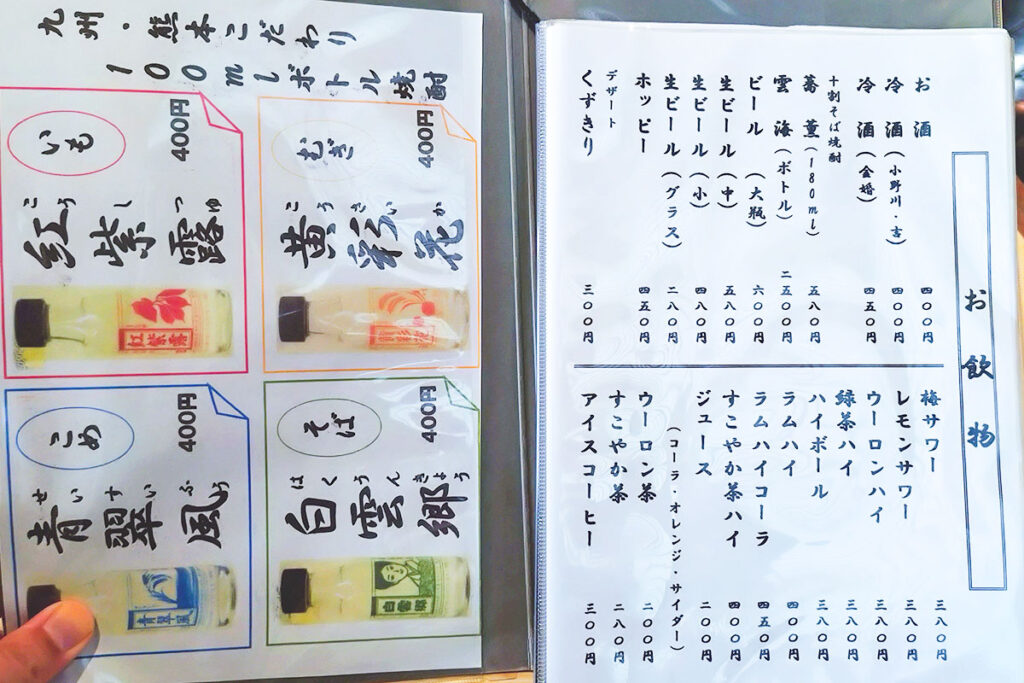 九州・熊本こだわり
100mlボトル焼酎
いも
400円
こうしつゆ
紅紫露
紅紫露
むぎ
400円
こうさいか
黄彩花
こめ
400円
せいすいふう
青翠風
青翠風
そば
400円
はくうんきょう
白雲郷
白雲郷
お飲物
お酒 四〇〇円
冷酒(小野川・古) 四〇〇円
冷酒(金婚) 四五〇円
十割そば焼酎
(180ml) 五八〇円
雲海(ボトル) 二五〇〇円
ビール(大瓶) 六〇〇円
生ビール(中) 五八〇円
生ビール(小) 四八〇円
生ビール(グラス) 二八〇円
ホッピー 四五〇円
デザート
くずきり 三〇〇円
梅サワー 三八〇円
レモンサワー 三八〇円
ウーロンハイ 三八〇円
緑茶ハイ 三八〇円
ハイボール 三八〇円
ラムハイ 四〇〇円
ラムハイコーラ 四五〇円
すこやか茶ハイ 四〇〇円
ジュース 二〇〇円
(コーラ・オレンジ・サイダー)
ウーロン茶 二〇〇円
すこやか茶 二八〇円
アイスコーヒー 三〇〇円